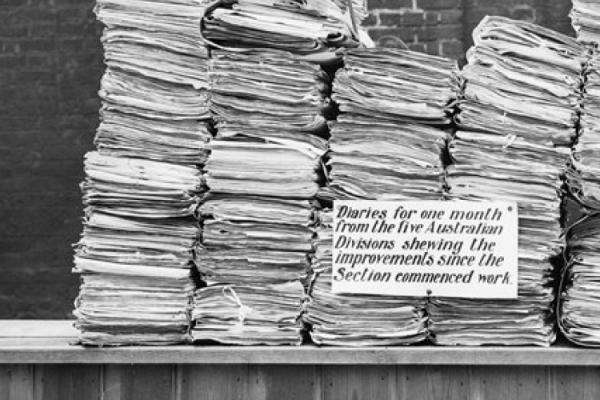 Diaries for one month
from the five Australian
Divisions shewing the
improvements since the
Section commenced work.